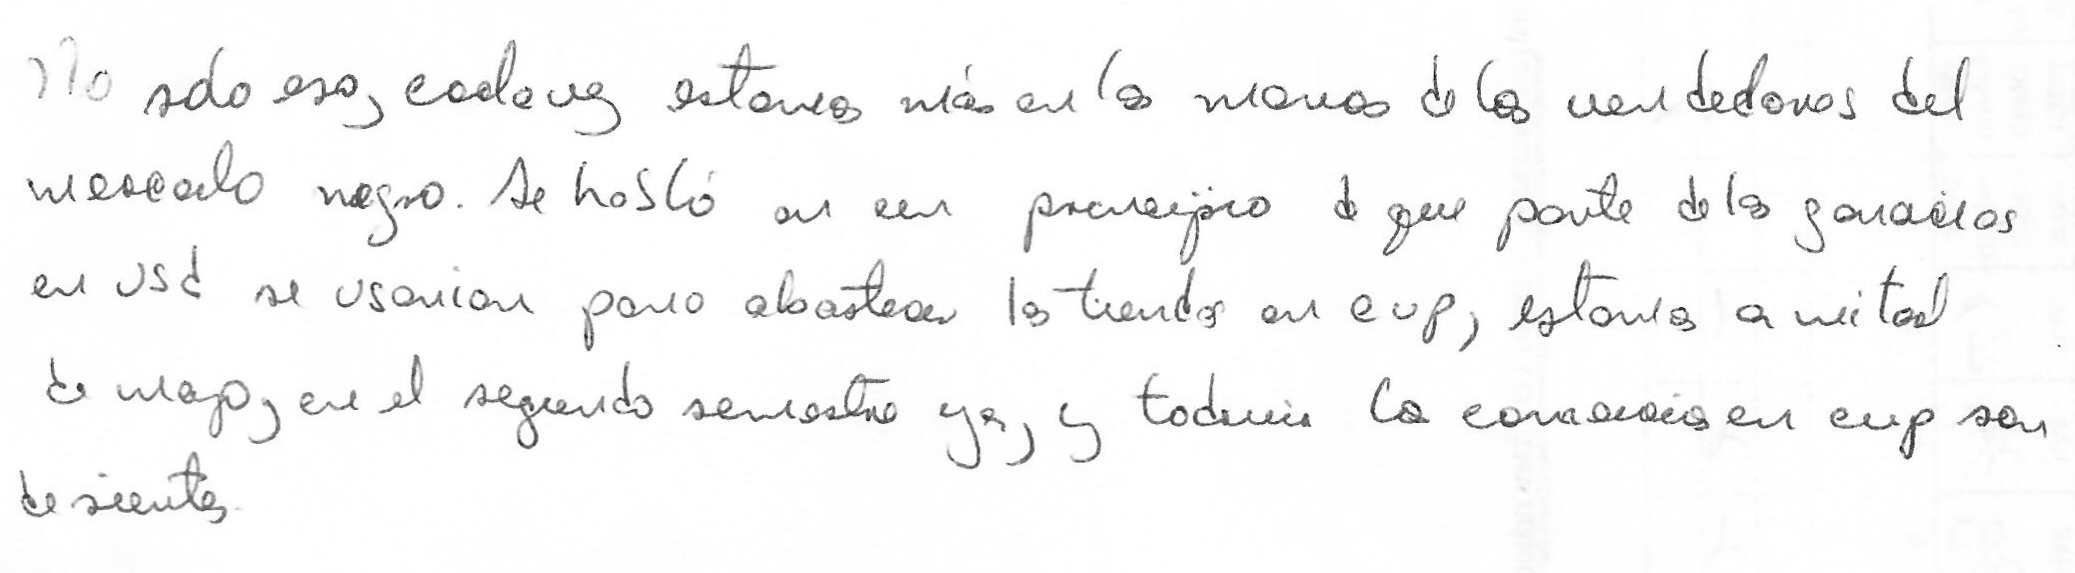 No solo eso, cada vez estamos más en las manos de los vendedores del
mercado negro. Se habló en un principio de que parte de las ganacias
en usd se usarian para abastecer las tiendas en cup, estamos a mitad
de mayo, en el segundo semestre ya, y todavia los comercios en cup son
desiertos.